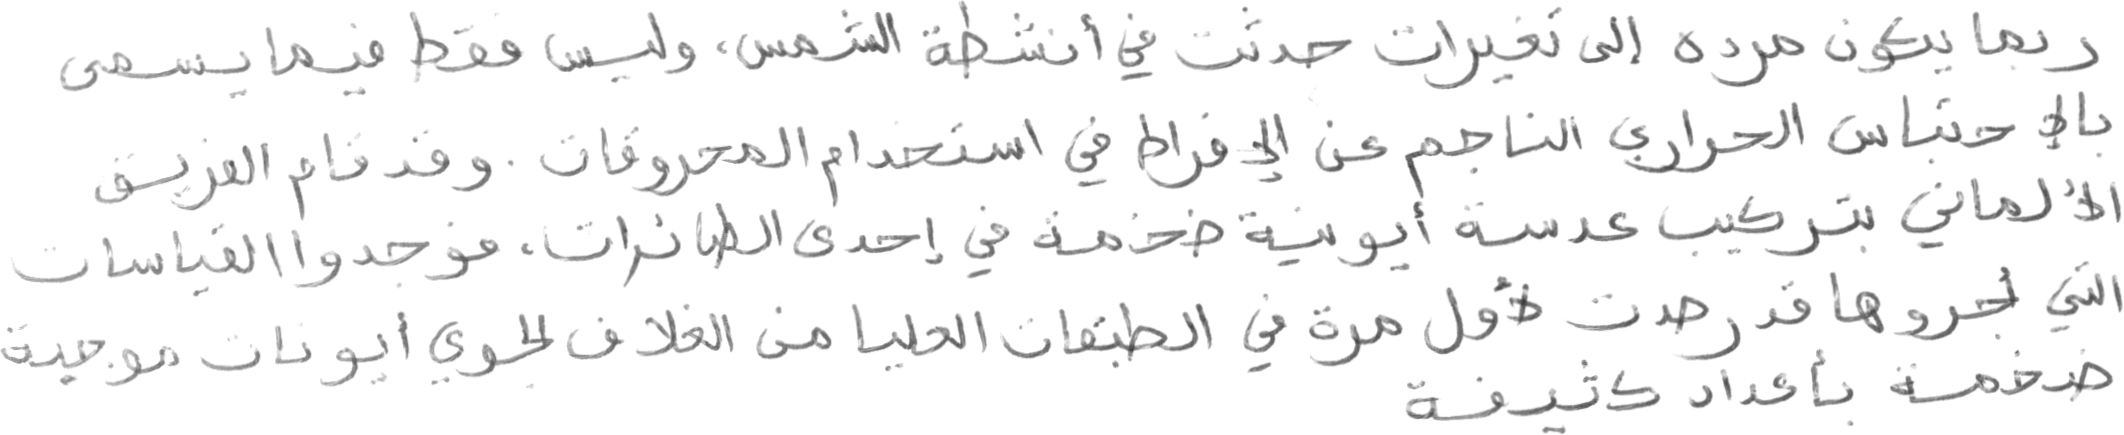 ربما يكون مرده إلى تغيرات حدثت في أنشطة الشمس، وليس فقط فيما يسمى
بالإحتباس الحراري الناجم عن الإفراط في استخدام المحروقات. وقد قام الفريق
الألماني بتركيب عدسة أيونية ضخمة في إحدى الطائرات، فوجدوا القياسات
التي أجروها قد رصدت لأول مرة في الطبقات العليا من الغلاف الجوي أيونات موجبة
ضخمة بأعداد كثيفة